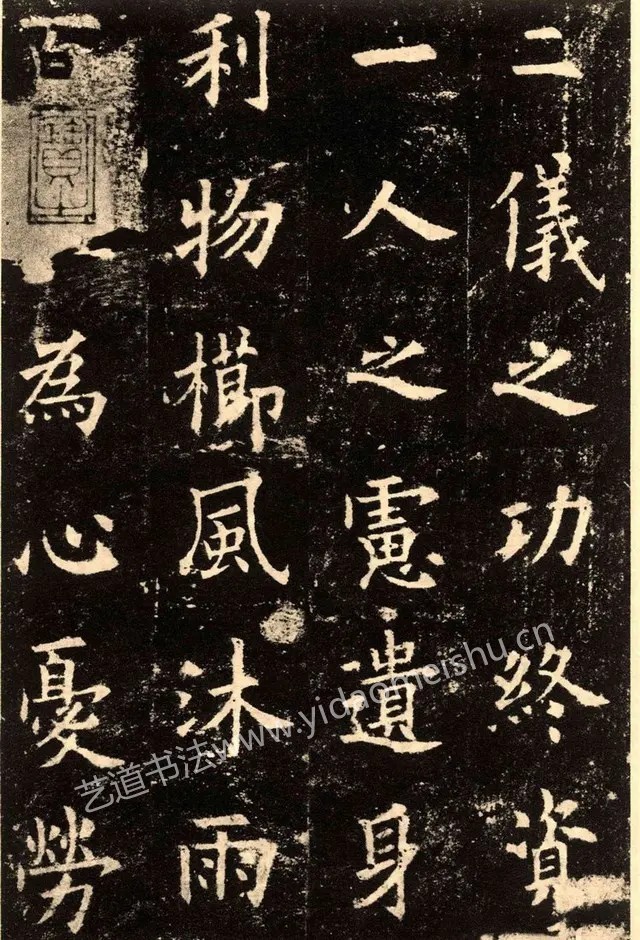 二儀之功終資
一人之慮遺身
利物櫛風沐雨
百為心憂勞
艺道书法www.yidaomeishu.cn